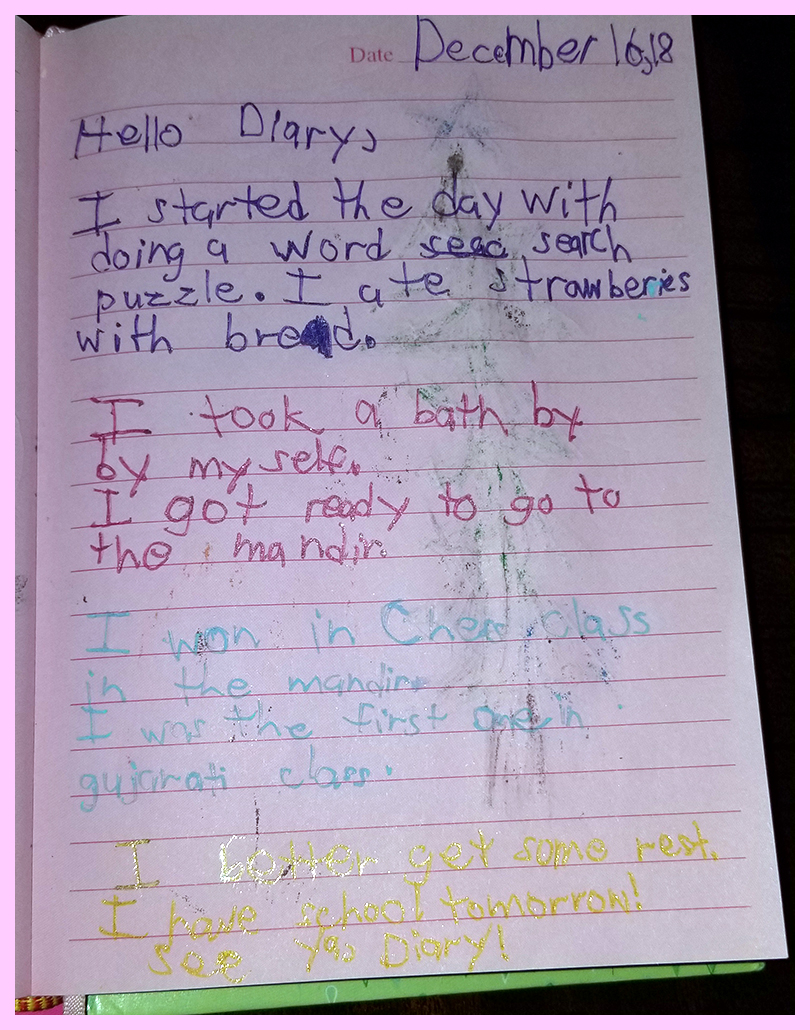 Date December 16,18
Hello Diary,
I started the day with
doing a word seac search
puzzle. I ate strawberies
with bread.
I took a bath by
by my self.
I got ready to go to
the mandir.
I won in Chess class
in the mandir.
I was the first one in
gujarati class.
I better get some rest.
I have school tomorrow!
see ya, Diary!